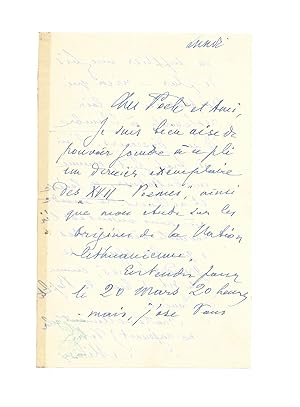 Cher Poète et Ami,
Je suis bien aise de
pouvoir joindre à ce pli
un dernier exemplaire
des "XVII Poèmes", ainsi
que mon étude sur les
origines de la Nation
lithuanienne.
Entendu pour
le 20 Mars 20 heures
mais, j'ose Vous